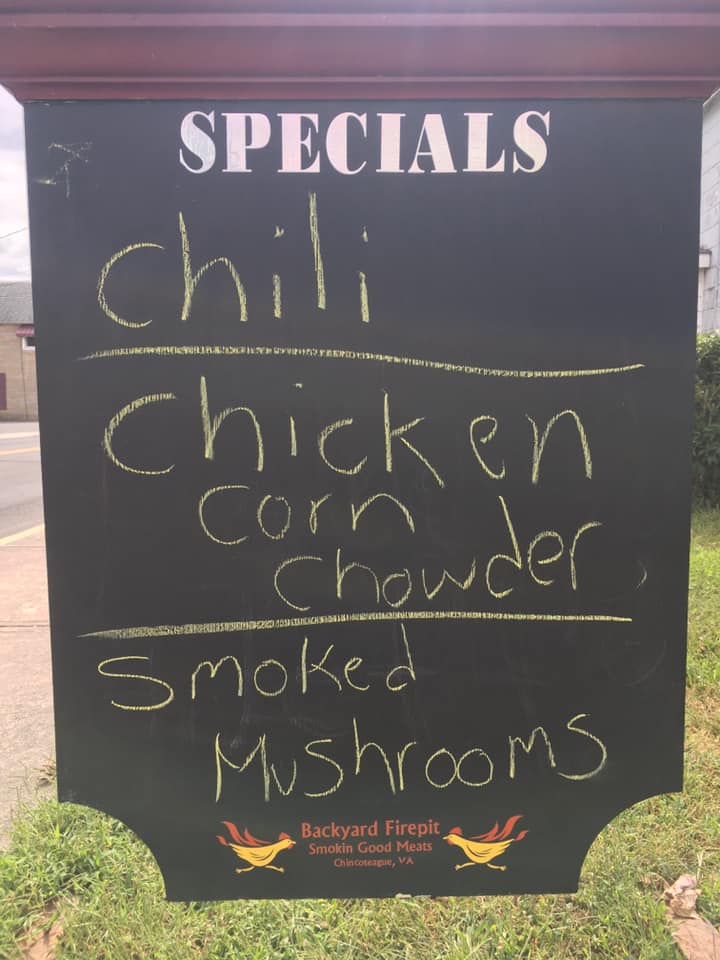 SPECIALS
Chili
Chicken
Corn
Chowder
Smoked
Mushrooms
Backyard Firepit
Smokin Good Meats
Chincoteague, VA